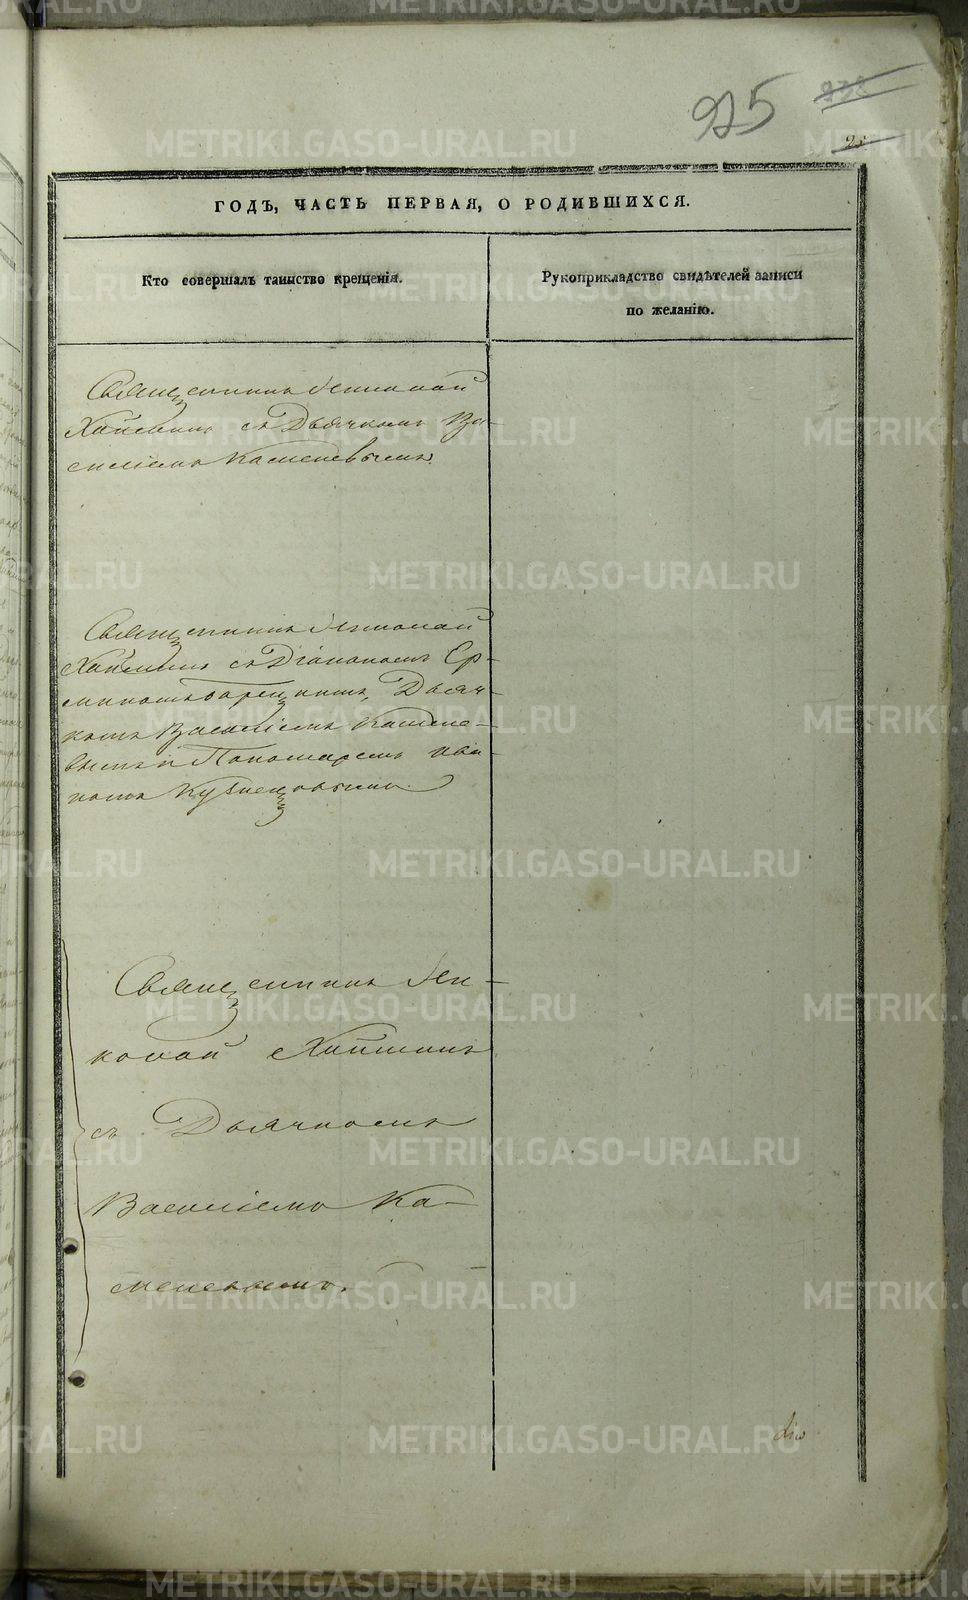 925
ГОДЪ, ЧАСТЬ ПЕРВАЯ, О РОДИВШИХСЯ.
Кто совершалъ таинство крещенія.
Рукоприкладство свидѣтелей записи
по желанію.
Священникъ Николай
съ Дьячкомъ Ва-
силіемъ Каменевымъ.
Священникъ Николай
съ Діакономъ
Дьяч-
комъ Василіемъ Камене-
вымъ и Пономаремъ Ива-
номъ Кузнецовымъ.
Священникъ Ни-
колай
съ Дьячкомъ
Василіемъ Ка-
меневымъ.
METRIKI.GASO-URAL.RU